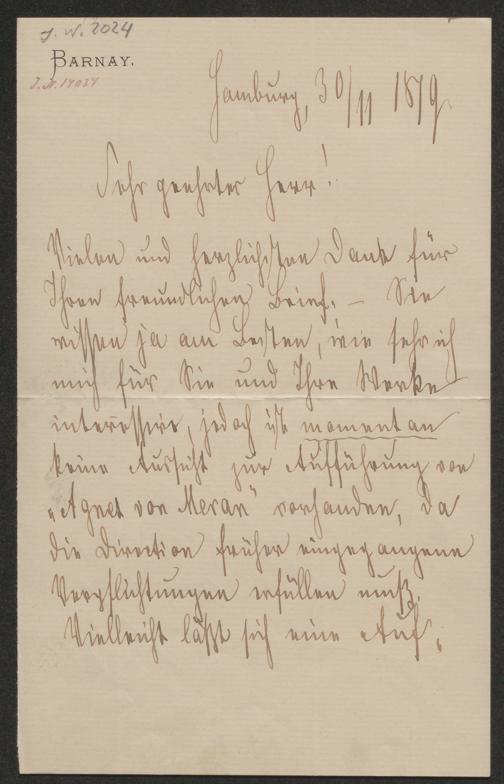 J. N. 2024
BARNAY.
J. N. 14024
Hamburg, 30/11 1879.
Sehr geehrter Herr!
Vielen und herzlichsten Dank für
Ihren freundlichen Brief. – Sie
wissen ja am Besten, wie sehr ich
mich für Sie und Ihre Werke
interessire, jedoch ist momentan
keine Aussicht zur Aufführung von
„Agnes von Meran" vorhanden, da
die Direction früher eingegangene
Verpflichtungen erfüllen muß.
Vielleicht läßt sich eine Auf-